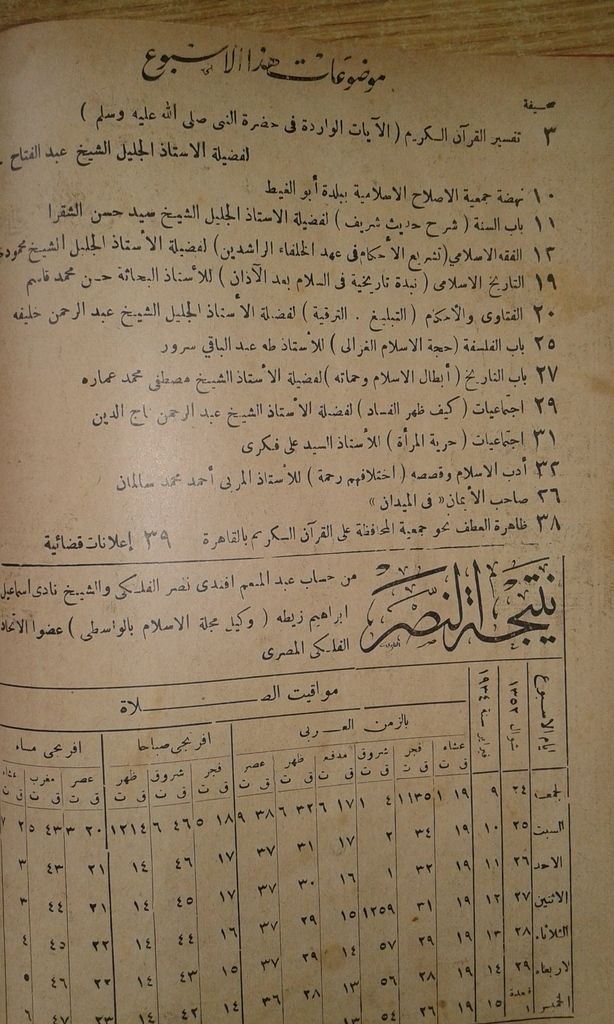 موضوعات هذا الاسبوع
صحيفة
٣ تفسير القرآن الكريم ( الآيات الواردة فى حضرة النبى صلى الله عليه وسلم )
لفضيلة الاستاذ الجليل الشيخ عبد الفتاح
١٠ نهضة جمعية الاصلاح الاسلامية ببلدة أبو الغيط
١١ باب السنة ( شرح حديث شريف ) لفضيلة الاستاذ الجليل الشيخ سيد حسن الشقرا
١٣ الفقه الاسلامي (تشريع الأحكام فى عهد الخلفاء الراشدين) لفضيلة الأستاذ الجليل الشيخ محمود
١٩ التاريخ الاسلامى ( نبذة تاريخية فى السلام بعد الآذان ) للأستاذ البحاثة حسن محمد قاسم
٢٠ الفتاوى والأحكام ( التبليغ . الترقية ) لفضيلة الأستاذ الجليل الشيخ عبد الرحمن خليفه
٢٥ باب الفلسفة (حجة الاسلام الغزالى ) للأستاذ طه عبد الباقي سرور
٢٧ باب التاريخ ( أبطال الاسلام وحماته ) لفضيلة الأستاذ الشيخ مصطفى محمد عماره
٢٩ اجتماعيات ( كيف ظهر الفساد ) لفضيلة الأستاذ الشيخ عبد الرحمن تاج الدين
٣١ اجتماعيات ( حرية المرأة ) للأستاذ السيد على فكرى
٣٢ أدب الاسلام وقصصه ( اختلافهم رحمة ) للأستاذ المربى أحمد محمد سالمان
٢٦ صاحب الأيمان « فى الميدان »
٣٨ ظاهرة العطف نحو جمعية المحافظة على القرآن الكريم بالقاهرة ٣٩ إعلانات قضائية
نتيجة النصر
من حساب عبد المنعم افندى نصر الفلكى والشيخ نادى اسماعيل
ابراهيم زيطه ( وكيل مجلة الاسلام بالواسطى ) عضوا الاتحاد
الفلكى المصرى
ايام الاسبوع
شوال ١٣٥٢
فبراير سنة ١٩٣٤
مواقيت الصـــلاة
بالزمن العــربى
افرنجى صباحا
افرنجى مساء
عشاء فجر شروق مدفع ظهر عصر فجر شروق ظهر عصر مغرب عشاء
ق ت ق ت ق ت ق ت ق ت ق ت ق ت ق ت ق ت ق ت ق ت ق ت
الجمعه ٢٤ ٩ ١٩ ١ ٣٥ ١١ ٤ ١ ١٧ ٦ ٣٢ ٦ ٣٨ ٩ ١٨ ٥ ٤٦ ٦ ١٤ ١٢ ٢٠ ٣ ٤٣ ٥ ٢ ٧
السبت ٢٥ ١٠ ١٩ ٣٤ ٢ ١٧ ٣١ ٣٧ ١٧ ٤٦ ١٤ ٢١ ٤٣ ٣
الاحد ٢٦ ١١ ١٩ ٣٢ ١ ١٦ ٣٠ ٣٧ ١٧ ٤٥ ١٤ ٢١ ٤٤ ٣
الاثنين ٢٧ ١٢ ١٩ ٣١ ٥٩ ١٢ ١٥ ٢٩ ٣٧ ١٦ ٤٤ ١٤ ٢٢ ٤٥ ٤
الثلاثاء ٢٨ ١٣ ١٩ ٢٩ ٥٧ ١٤ ٢٩ ٣٧ ١٥ ٤٣ ١٤ ٢٢ ٤٦ ٥
الاربعاء ٢٩ ١٤ ١٩ ٢٨ ٥٦ ١٣ ٢٨ ٣٦ ١٤ ٤٢ ١٤ ٢٣ ٤٧ ٦
الخميس ١٥ ١٩ ٢٦ ٥٤ ١٣